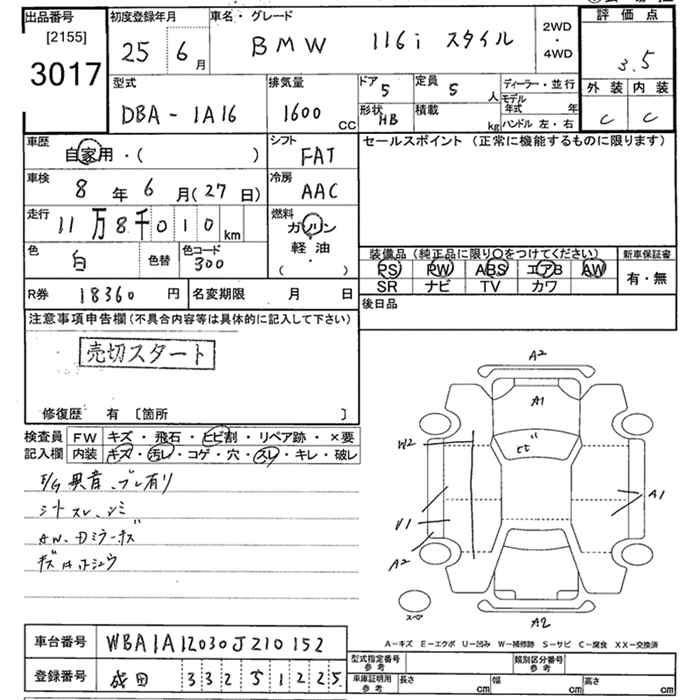 出品番号
[2155]
3017
初度登録年月
25 6月
車名・グレード
BMW 116i スタイル
2WD
・
4WD
評価点
3.5
外装 内装
C C
型式
DBA - 1A16
排気量
1600 CC
ドア 5
定員 5 人
形状 HB
積載 kg
ディーラー・並行
モデル年式 年
ハンドル 左・右
車歴
自家用・( )
シフト
FAT
セールスポイント (正常に機能するものに限ります)
車検
8年 6月(27日)
冷房
AAC
走行
11万8千010km
燃料
ガソリン
軽油
( ・ )
色
白
色替
色コード
300
装備品 (純正品に限り○をつけてください)
PS PW ABS エアB AW
SR ナビ TV カワ
新車保証書
有・無
R券 18360円
名変期限 月 日
後日品
注意事項申告欄(不具合内容等は具体的に記入して下さい)
売切スタート
修復歴 有 〔箇所 〕
検査員
記入欄
FW キズ・飛石・ヒビ割・リペア跡・×要
内装 キズ・汚レ・コゲ・穴・スレ・キレ・破レ
E/G異音、ブレ有り
シートスレ、シミ
AW、Dミラーキズ
A2
A1
W2
ヒビ
A1
V1
A2
スペア
A2
A-キズ E-エクボ U-凹み W-補修跡 S-サビ C-腐食 XX-交換済
車台番号 WBA1A12030J210152
登録番号 成田 332 5 1225
型式指定番号
参考
類別区分番号
参考
車庫証明用
参考
長さ cm
幅 cm
高さ cm